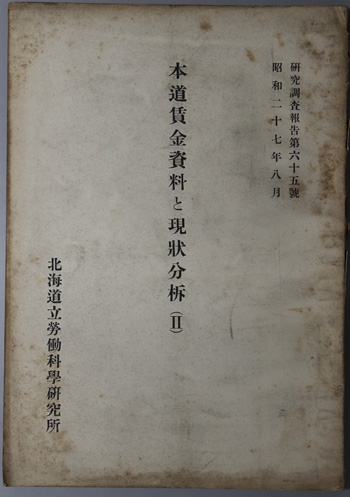 研究調査報告第六十五號
昭和二十七年八月
本道賃金資料と現狀分析(II)
北海道立勞働科學研究所